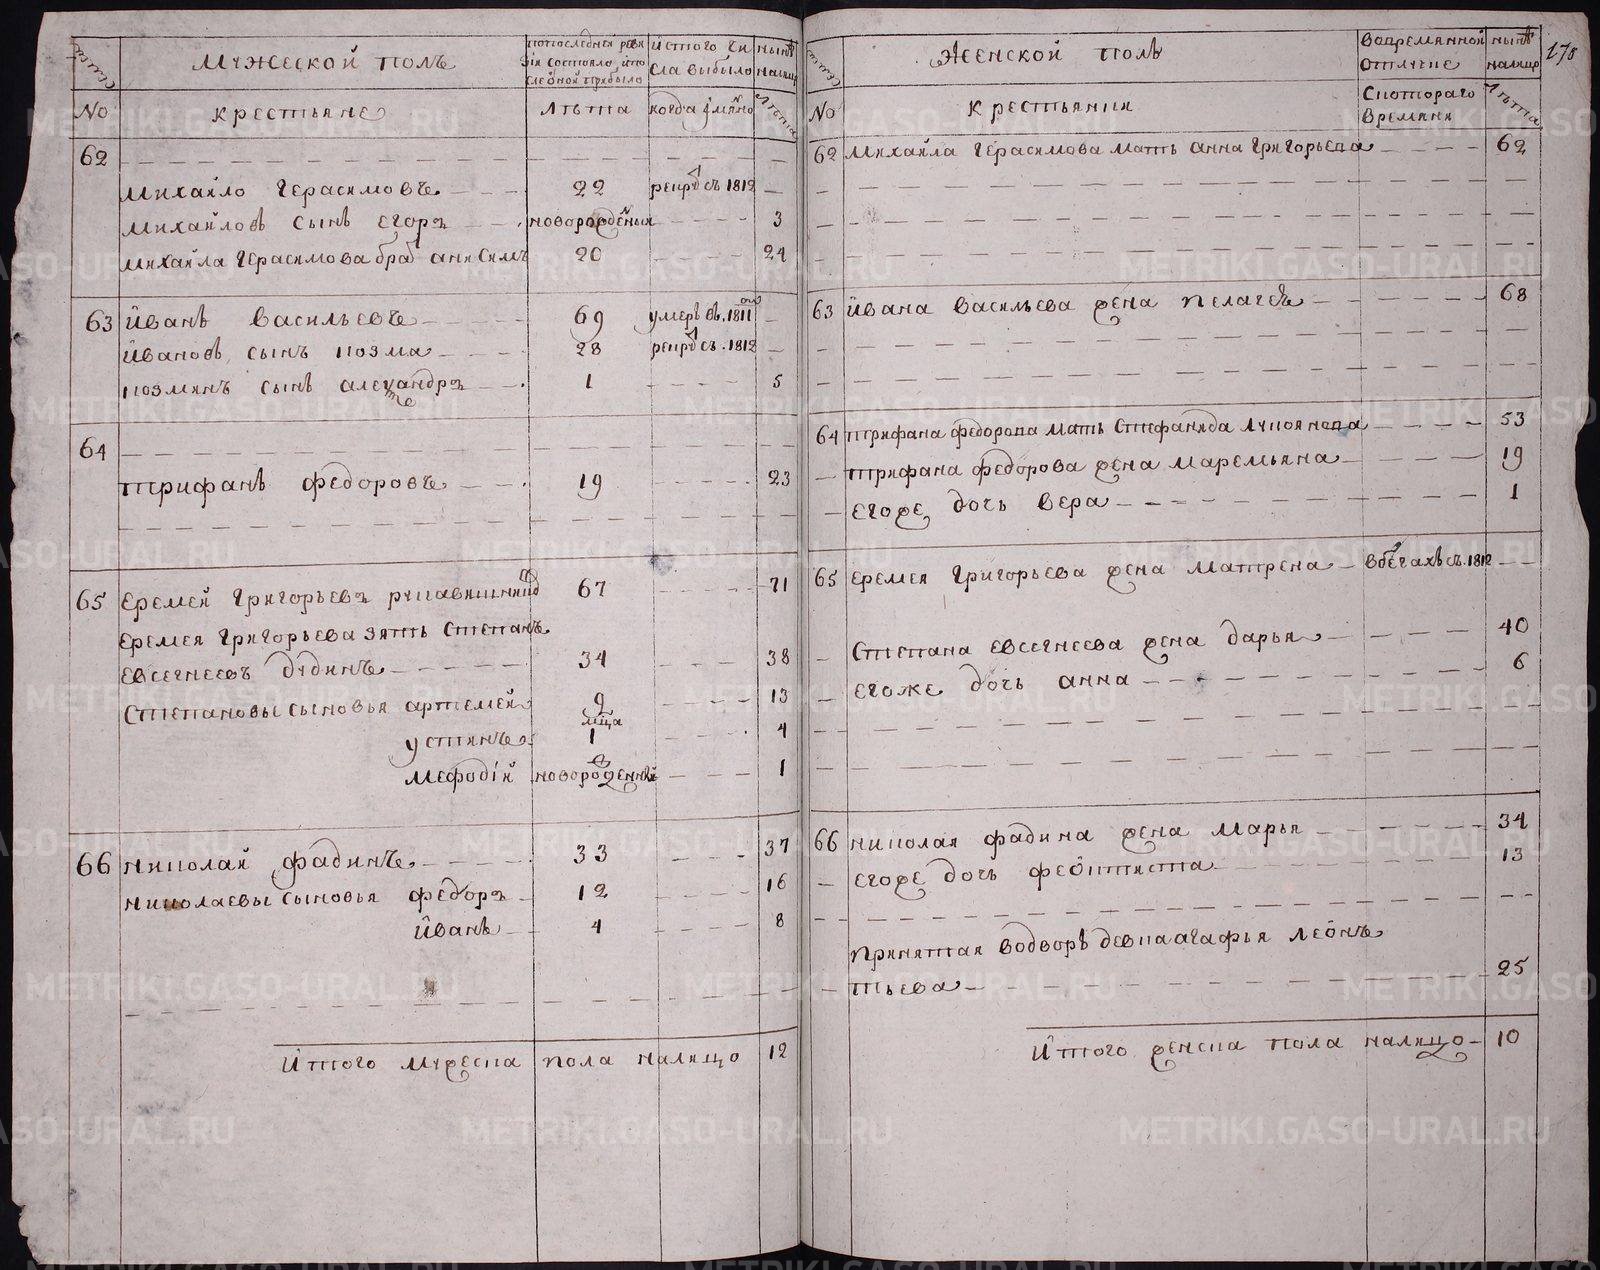 Мужеской полъ
Попоследней реви
зіи состояло, ипо
слеоной прибыло
Истого чи
сла выбыло
Нынѣ
налицо
No
крестьяне
лѣта
когда імянно
Лѣта
62
Михайло Герасимовъ 22 рекрутъ съ 1812
Михайловъ сынъ Егоръ новорожденыи 3
Михайла Герасимова брат Анисимъ 20 24
63 Иванъ Васильевъ 69 умеръ въ 1811 ом
Ивановъ сынъ Козма 28 рекрутъ съ 1812
Козминъ сынъ Александръ 1 5
64
Трифанъ Федоровъ 19 23
65 Еремей Григорьевъ Рукавишников 67 71
Еремея Григорьева зять Степанъ
Евсегнеевъ Дудинъ 34 38
Степановы сыновья Артемей 9 13
мца
Устинъ 1 4
Мефодій новорожденный 1
66 Николай Фадинъ 33 37
Николаевы сыновья Федоръ 12 16
Иванъ 4 8
Итого мужеска пола налицо 12
Женской полъ
Вовремянной
отлучке
Нынѣ
налицо
178
No
крестьянки
Скотораго
времяни
Лѣта
62 Михайла Герасимова мать Анна Григорьева 62
63 Ивана Васильева жена Пелагея 68
64 Трифана Федорова мать Стефанида Лукоянова 53
Трифана Федорова жена Маремьяна 19
Егоже дочь Вера 1
65 Еремея Григорьева жена Матрена вбегахъ съ 1812
Степана Евсегнеева жена Дарья 40
Егоже дочь Анна 6
66 Николая Фадина жена Марья 34
Егоже дочь Феоктиста 13
Принятая водворъ девка Агафья Леонъ
тьева 25
Итого женска пола налицо 10
METRIKI.GASO-URAL.RU